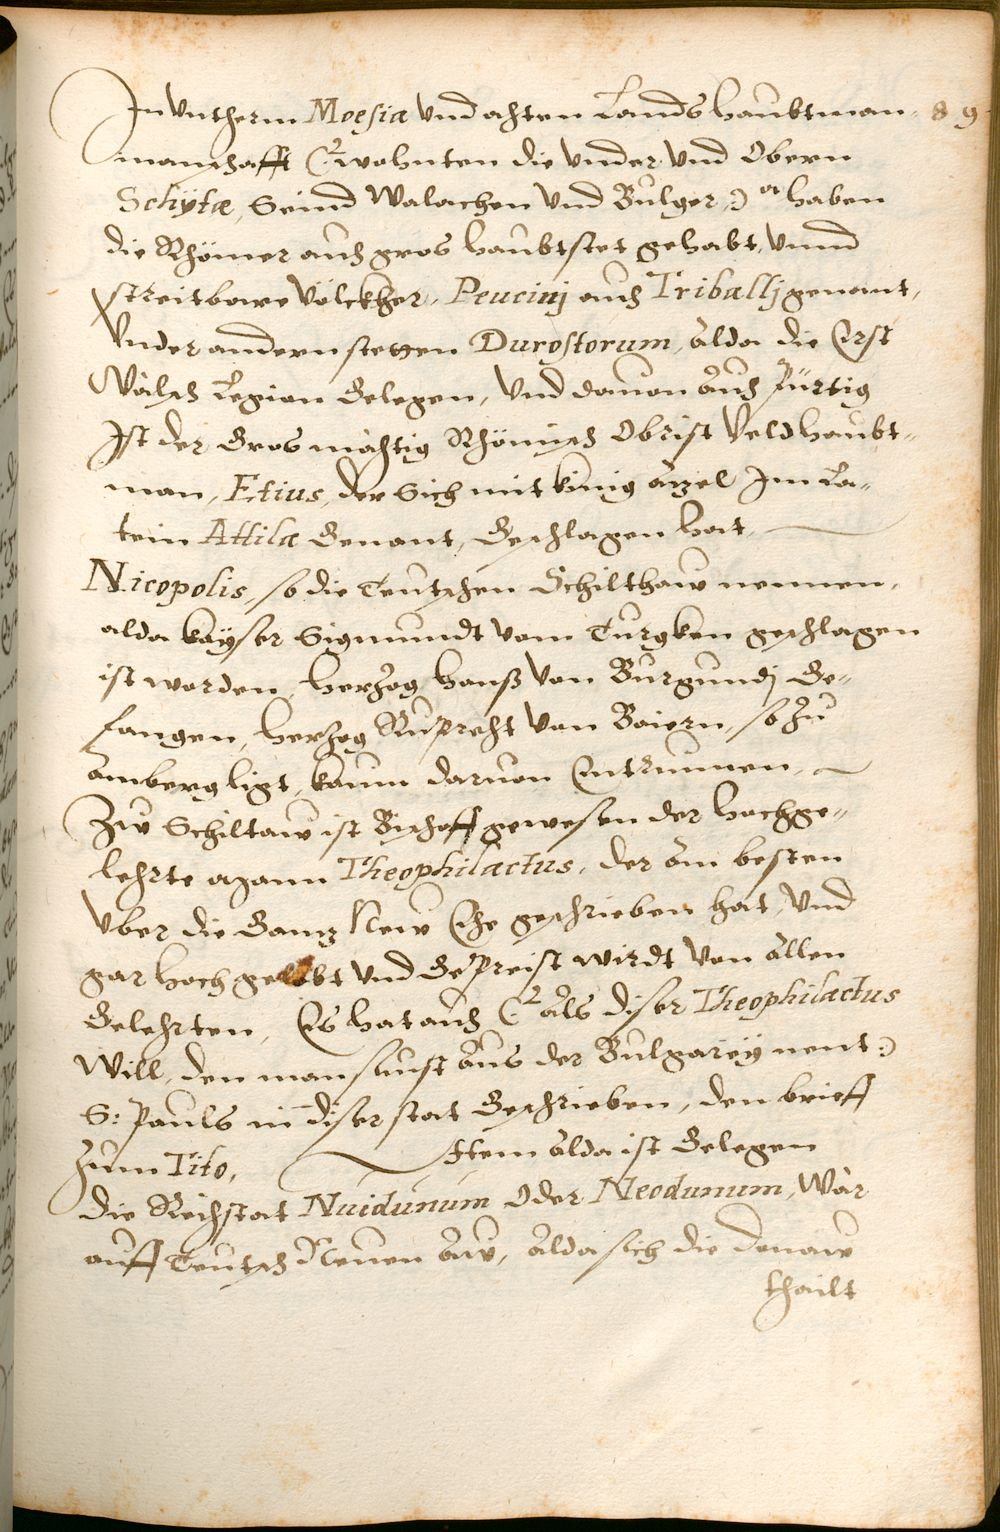 In Vntherm Moesia Vnd achten Lands haubtman- 89
manschafft (: wohnten die vnder Vnd Obern
Schÿtæ, Seind Walachen Vnd Bulger :) haben
die Rhömer auch gros haubtstet gehabt, Vnnd
streitbare Völckher, Peucinj auch Triballj genant,
Vnder andern stetten Durostorum, alda die Erst
Wälsch Legion Gelegen, Vnd dauon auch pürtig
Ist der Gros mächtig Rhömisch Obrist Veldhaubt-
man, Etius, der Sich mit künig Atzel Im La-
tein Attila Genant, Geschlagen hat,
Nicopolis, so die Teutschen Schilthaw nennen,
alda kaÿser Sigmundt vom Turgken geschlagen
ist worden, herzog Hanß Von Burgundj Ge-
fangen, herzog Ruprecht Von Baiern, so zu
Amberg ligt, kaum daruon Entrunnen,
Zw Schiltaw ist Bischoff gewesen der hochge-
lehrte mann Theophilactus, der Am besten
Vber die Gantz New Ehe geschrieben hat, Vnd
gar hoch gelobt Vnd Gepreist wirdt Von Allen
Gelehrten, Es hat auch (: als diser Theophilactus
Will, den man sunst Aus der Bulgareÿ nent :)
S: Pauls in diser stat Geschrieben, den brieff
Zum Tito, Item Alda ist Gelegen
die Reichstat Nuidunum Oder Neodunum, War
auff Teutsch Neuen Aw, Alda sich die Donaw
thailt